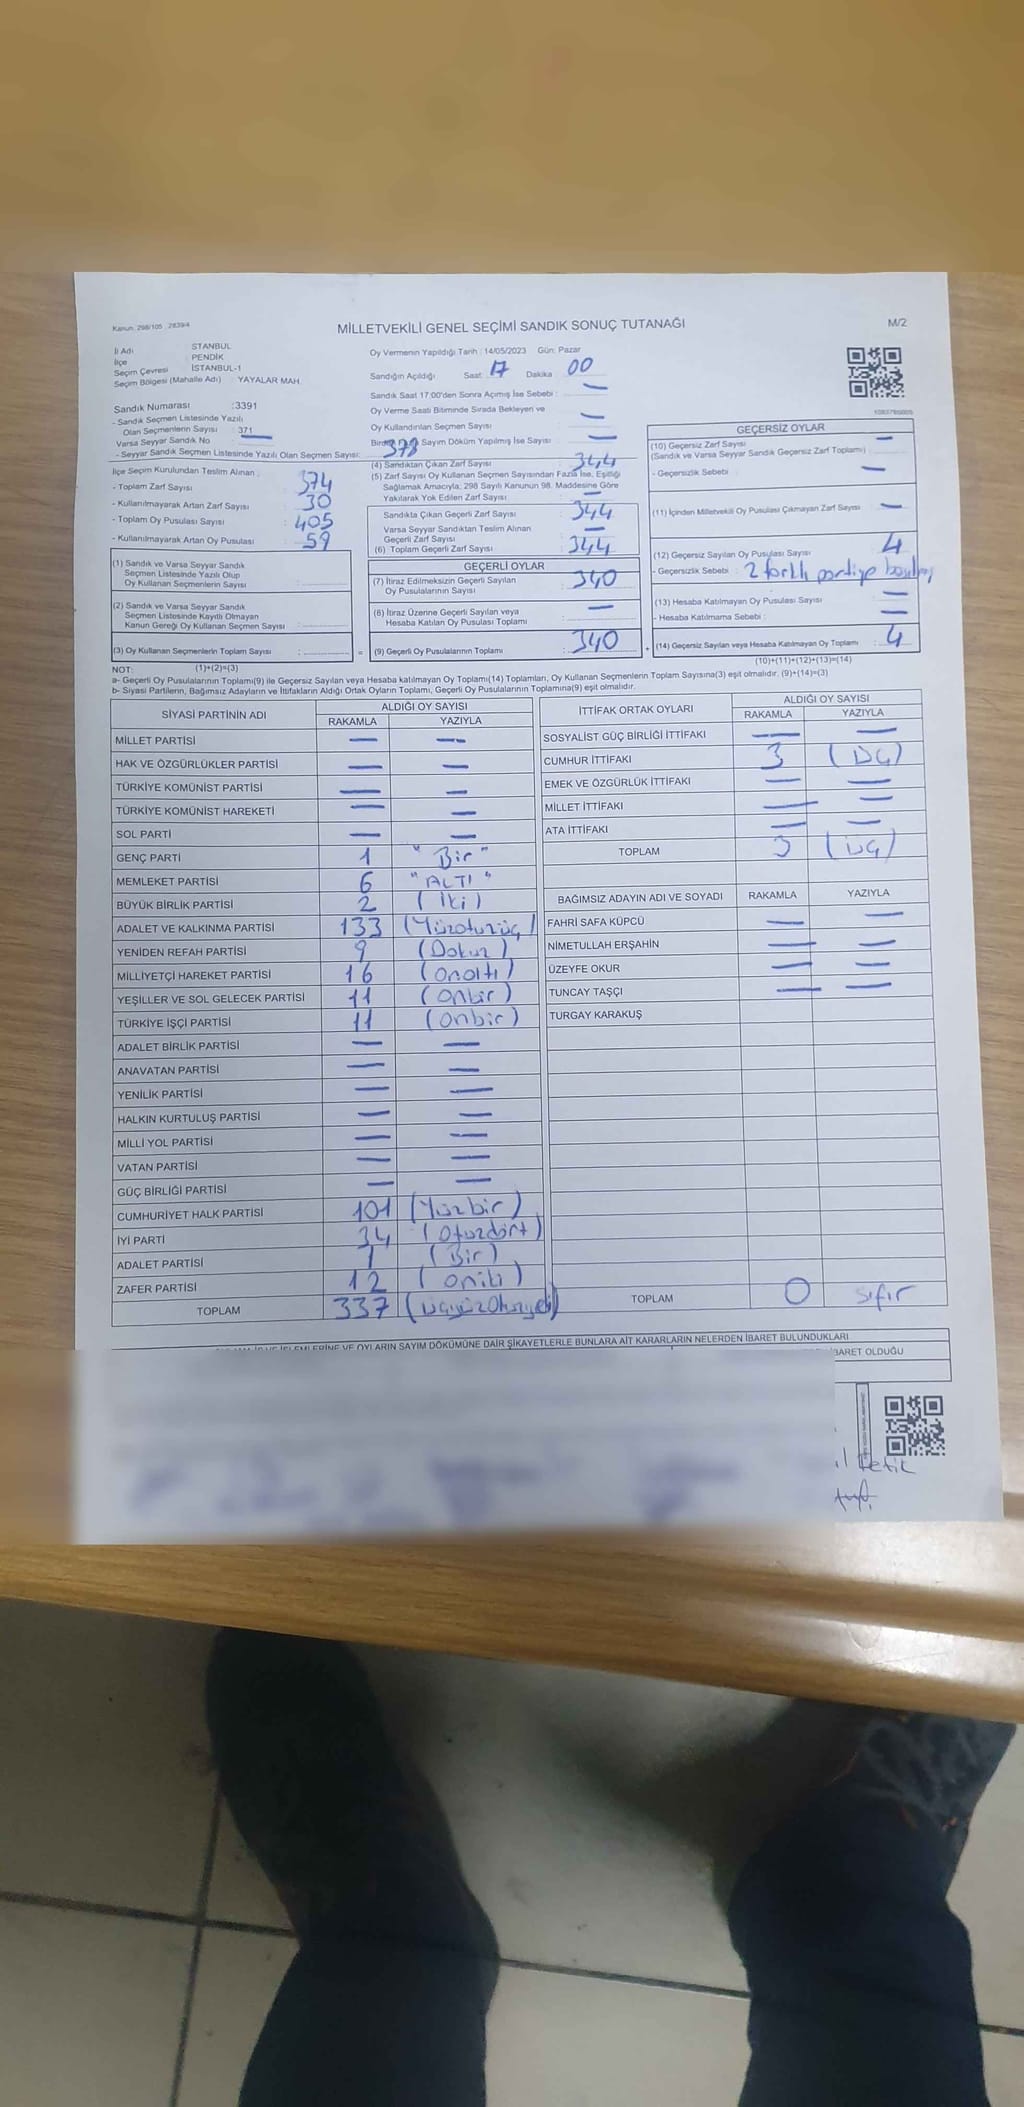 Kanun: 298/105 , 2839/4
MİLLETVEKİLİ GENEL SEÇİMİ SANDIK SONUÇ TUTANAĞI
M/2
İl Adı STANBUL
İlçe PENDİK
Seçim Çevresi İSTANBUL-1
Seçim Bölgesi (Mahalle Adı) : YAYALAR MAH.
Oy Vermenin Yapıldığı Tarih : 14/05/2023 Gün: Pazar
Sandığın Açıldığı Saat : 17 Dakika : 00
Sandık Saat 17:00'den Sonra Açımış İse Sebebi : —
Oy Verme Saati Bitiminde Sırada Bekleyen ve
Oy Kullandırılan Seçmen Sayısı : —
Sayım Döküm Yapılmış İse Sayısı : —
Sandık Numarası :3391
- Sandık Seçmen Listesinde Yazılı
Olan Seçmenlerin Sayısı : 371
Varsa Seyyar Sandık No
- Seyyar Sandık Seçmen Listesinde Yazılı Olan Seçmen Sayısı:
378
İlçe Seçim Kurulundan Teslim Alınan :
- Toplam Zarf Sayısı : 374
- Kullanılmayarak Artan Zarf Sayısı : 30
- Toplam Oy Pusulası Sayısı : 405
- Kullanılmayarak Artan Oy Pusulası : 59
(1) Sandık ve Varsa Seyyar Sandık
Seçmen Listesinde Yazılı Olup
Oy Kullanan Seçmenlerin Sayısı :
(2) Sandık ve Varsa Seyyar Sandık
Seçmen Listesinde Kayıtlı Olmayan
Kanun Gereği Oy Kullanan Seçmen Sayısı :
(3) Oy Kullanan Seçmenlerin Toplam Sayısı : =
(4) Sandıktan Çıkan Zarf Sayısı : 344
(5) Zarf Sayısı Oy Kullanan Seçmen Sayısından Fazla İse, Eşitliği
Sağlamak Amacıyla; 298 Sayılı Kanunun 98. Maddesine Göre
Yakılarak Yok Edilen Zarf Sayısı : —
Sandıkta Çıkan Geçerli Zarf Sayısı : 344
Varsa Seyyar Sandıktan Teslim Alınan
Geçerli Zarf Sayısı : —
(6) Toplam Geçerli Zarf Sayısı : 344
GEÇERLİ OYLAR
(7) İtiraz Edilmeksizin Geçerli Sayılan
Oy Pusulalarının Sayısı : 340
(8) İtiraz Üzerine Geçerli Sayılan veya
Hesaba Katılan Oy Pusulası Toplamı : —
(9) Geçerli Oy Pusulalarının Toplamı : 340 +
GEÇERSİZ OYLAR
(10) Geçersiz Zarf Sayısı : —
(Sandık ve Varsa Seyyar Sandık Geçersiz Zarf Toplamı)
- Geçersizlik Sebebi : —
(11) İçinden Milletvekili Oy Pusulası Çıkmayan Zarf Sayısı : —
(12) Geçersiz Sayılan Oy Pusulası Sayısı : 4
- Geçersizlik Sebebi : 2 farklı partiye
(13) Hesaba Katılmayan Oy Pusulası Sayısı : —
- Hesaba Katılmama Sebebi : —
(14) Geçersiz Sayılan veya Hesaba Katılmayan Oy Toplamı : 4
NOT: (1)+(2)=(3) (10)+(11)+(12)+(13)=(14)
a- Geçerli Oy Pusulalarının Toplamı(9) ile Geçersiz Sayılan veya Hesaba katılmayan Oy Toplamı(14) Toplamları, Oy Kullanan Seçmenlerin Toplam Sayısına(3) eşit olmalıdır. (9)+(14)=(3)
b- Siyasi Partilerin, Bağımsız Adayların ve İttifakların Aldığı Ortak Oyların Toplamı, Geçerli Oy Pusulalarının Toplamına(9) eşit olmalıdır.
SİYASİ PARTİNİN ADI ALDIĞI OY SAYISI
RAKAMLA YAZIYLA
MİLLET PARTİSİ — —
HAK VE ÖZGÜRLÜKLER PARTİSİ — —
TÜRKİYE KOMÜNİST PARTİSİ — —
TÜRKİYE KOMÜNİST HAREKETİ — —
SOL PARTİ — —
GENÇ PARTİ 1 "Bir"
MEMLEKET PARTİSİ 6 "ALTI"
BÜYÜK BİRLİK PARTİSİ 2 (İki)
ADALET VE KALKINMA PARTİSİ 133 (Yüzotuzüç)
YENİDEN REFAH PARTİSİ 9 (Dokuz)
MİLLİYETÇİ HAREKET PARTİSİ 16 (onaltı)
YEŞİLLER VE SOL GELECEK PARTİSİ 11 (onbir)
TÜRKİYE İŞÇİ PARTİSİ 11 (onbir)
ADALET BİRLİK PARTİSİ — —
ANAVATAN PARTİSİ — —
YENİLİK PARTİSİ — —
HALKIN KURTULUŞ PARTİSİ — —
MİLLİ YOL PARTİSİ — —
VATAN PARTİSİ — —
GÜÇ BİRLİĞİ PARTİSİ — —
CUMHURİYET HALK PARTİSİ 101 (Yüzbir)
İYİ PARTİ 34 (Otuzdört)
ADALET PARTİSİ 1 (Bir)
ZAFER PARTİSİ 12 (oniki)
TOPLAM 337 (üçyüzOtuzyedi)
İTTİFAK ORTAK OYLARI ALDIĞI OY SAYISI
RAKAMLA YAZIYLA
SOSYALİST GÜÇ BİRLİĞİ İTTİFAKI — —
CUMHUR İTTİFAKI 3 (üç)
EMEK VE ÖZGÜRLÜK İTTİFAKI — —
MİLLET İTTİFAKI — —
ATA İTTİFAKI — —
TOPLAM 3 (üç)
BAĞIMSIZ ADAYIN ADI VE SOYADI RAKAMLA YAZIYLA
FAHRİ SAFA KÜPCÜ — —
NİMETULLAH ERŞAHİN — —
ÜZEYFE OKUR — —
TUNCAY TAŞÇI — —
TURGAY KARAKUŞ
TOPLAM 0 sıfır
VE OYLARIN SAYIM DÖKÜMÜNE DAİR ŞİKAYETLERLE BUNLARA AİT KARARLARIN NELERDEN İBARET BULUNDUKLARI
İBARET OLDUĞU